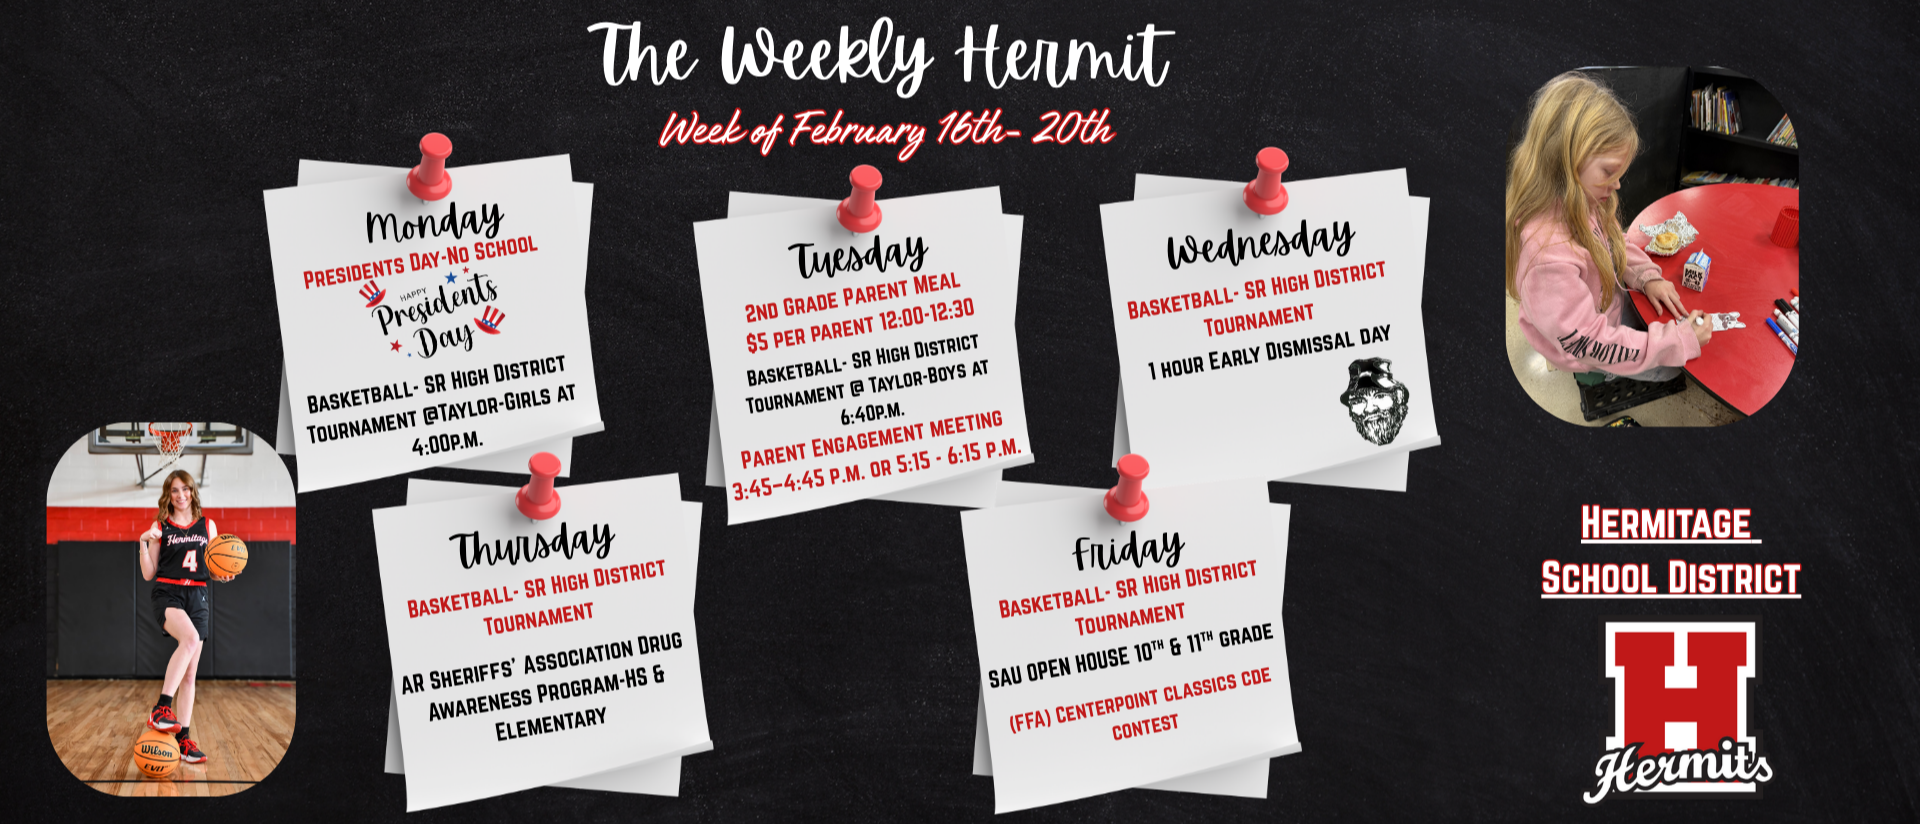 The Weekly Hermit
Week of February 16th- 20th
Monday
Presidents Day-No School
HAPPY
Presidents
Day
Basketball- SR High District
Tournament @Taylor-Girls at
4:00p.m.
Tuesday
2nd Grade Parent Meal
$5 per parent 12:00-12:30
Basketball- SR High District
Tournament @ Taylor-Boys at
6:40p.m.
Parent Engagement meeting
3:45–4:45 p.m. or 5:15 - 6:15 p.m.
Wednesday
Basketball- SR High District
Tournament
1 hour Early Dismissal Day
Thursday
Basketball- SR High District
Tournament
AR Sheriffs' Association Drug
Awareness Program-HS &
Elementary
Friday
Basketball- SR High District
Tournament
SAU open house 10th & 11th grade
(FFA) Centerpoint classics CDE
contest
Hermitage
4
Wilson
EVO
Hermitage
School District
H
Hermits